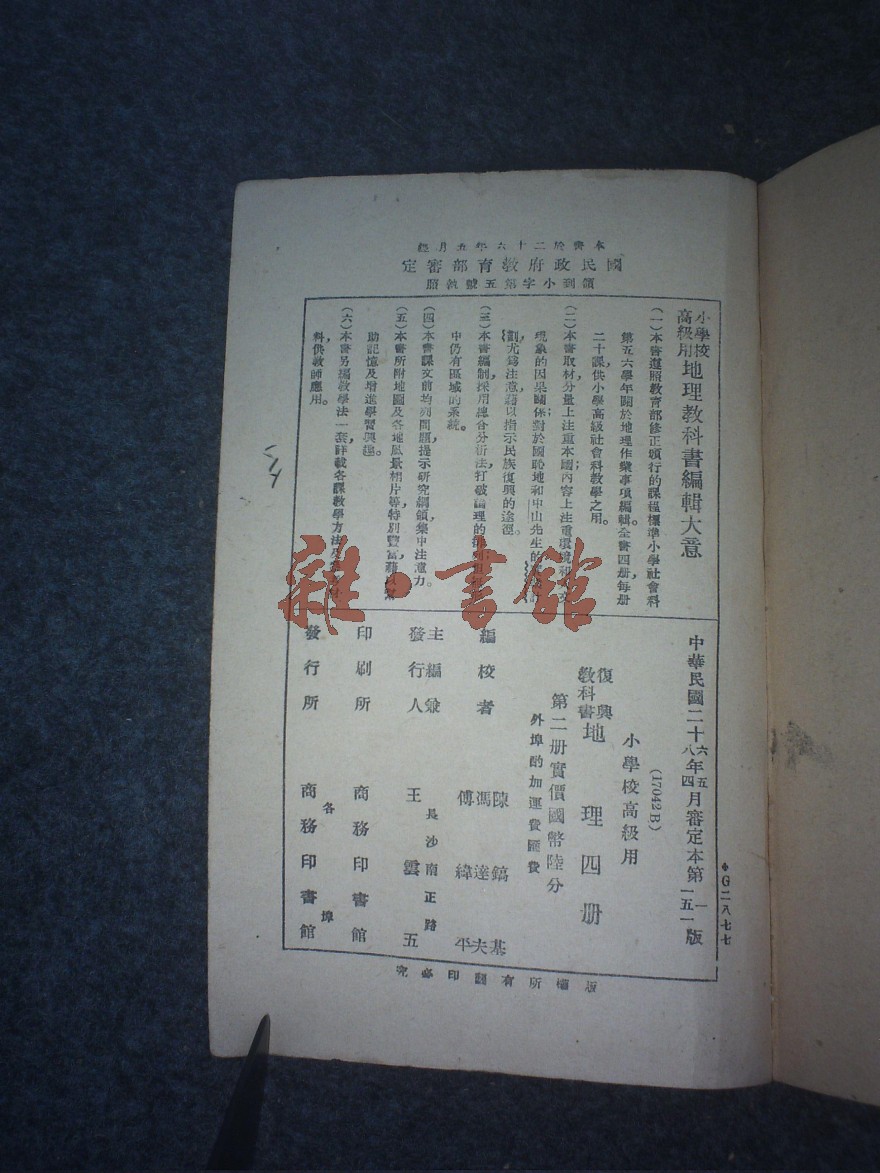 本書於二十六年五月經
國民政府教育部審定
領到小字第五號執照
小學校
高級用
地理教科書編輯大意
(一)本書遵照教育部修正頒行的課程標準小學社會科
第五六學年關於地理作業事項編輯。全書四册每册
二十課,供小學高級社會科教學之用。
(二)本書取材,分量上注重本國;內容上注重環境和
現象的因果關係;對於國恥地和中山先生的
劃尤爲注意,藉以指示民族復興的途徑。
(三)本書編制,採用總合分析法,打破論理的
中仍有區域的系統。
(四)本書課文前均列問題,提示研究綱領,集中注意力。
(五)本書所附地圖及各地風景相片等特別豐富,藉以
助記憶及增進學習興趣。
(六)本書另編教學法一套,詳載各課教學方法及
料,供教師應用。
中華民國二十六年五月審定本第一版
八 四 一五一
(17042B)
小學校高級用
復興
教科書
地理四册
第二册實價國幣陸分
外埠酌加運費匯費
編校者
陳鎬基
馮達夫
傅緯平
主編兼
發行人
長沙南正路
王雲五
印刷所
商務印書館
發行所
各埠
商務印書館
版權所有翻印必究
◆G二八七七
雜·書館